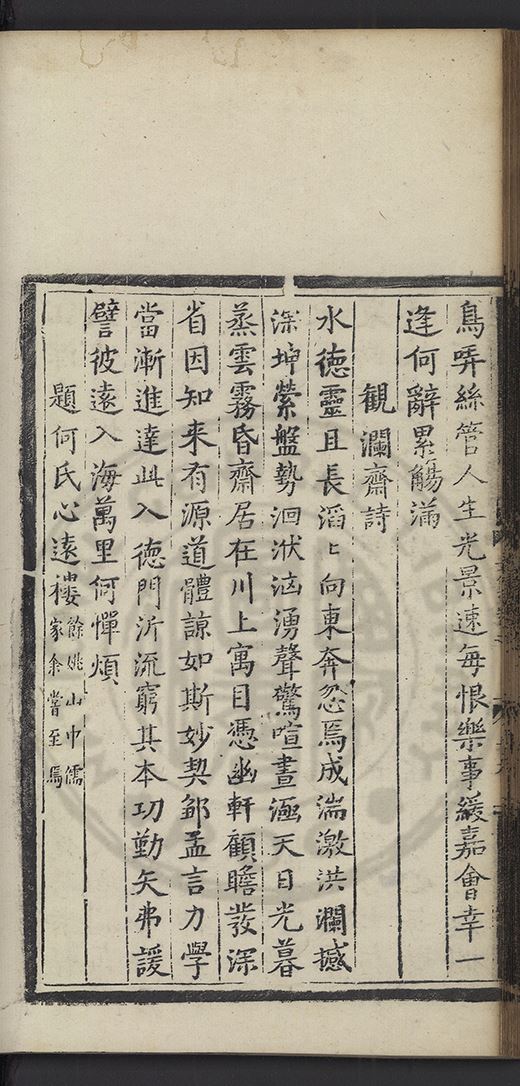 鳥哢絲管人生光景速每恨樂事緩嘉會幸一
逢何辭累觴滿
観瀾齋詩
水德靈且長滔〻向東奔忽焉成湍激洪瀾撼
深坤縈盤勢洄洑汹湧聲驚喧晝涵天日光暮
蒸雲霧昏齋居在川上寓目憑幽軒顧瞻發深
省因知来有源道體諒如斯妙契鄒孟言力學
當漸進達此入德門沂流窮其本功勤矢弗諼
譬彼遠入海萬里何憚煩
題何氏心遠樓餘姚山中儒
家余嘗至焉